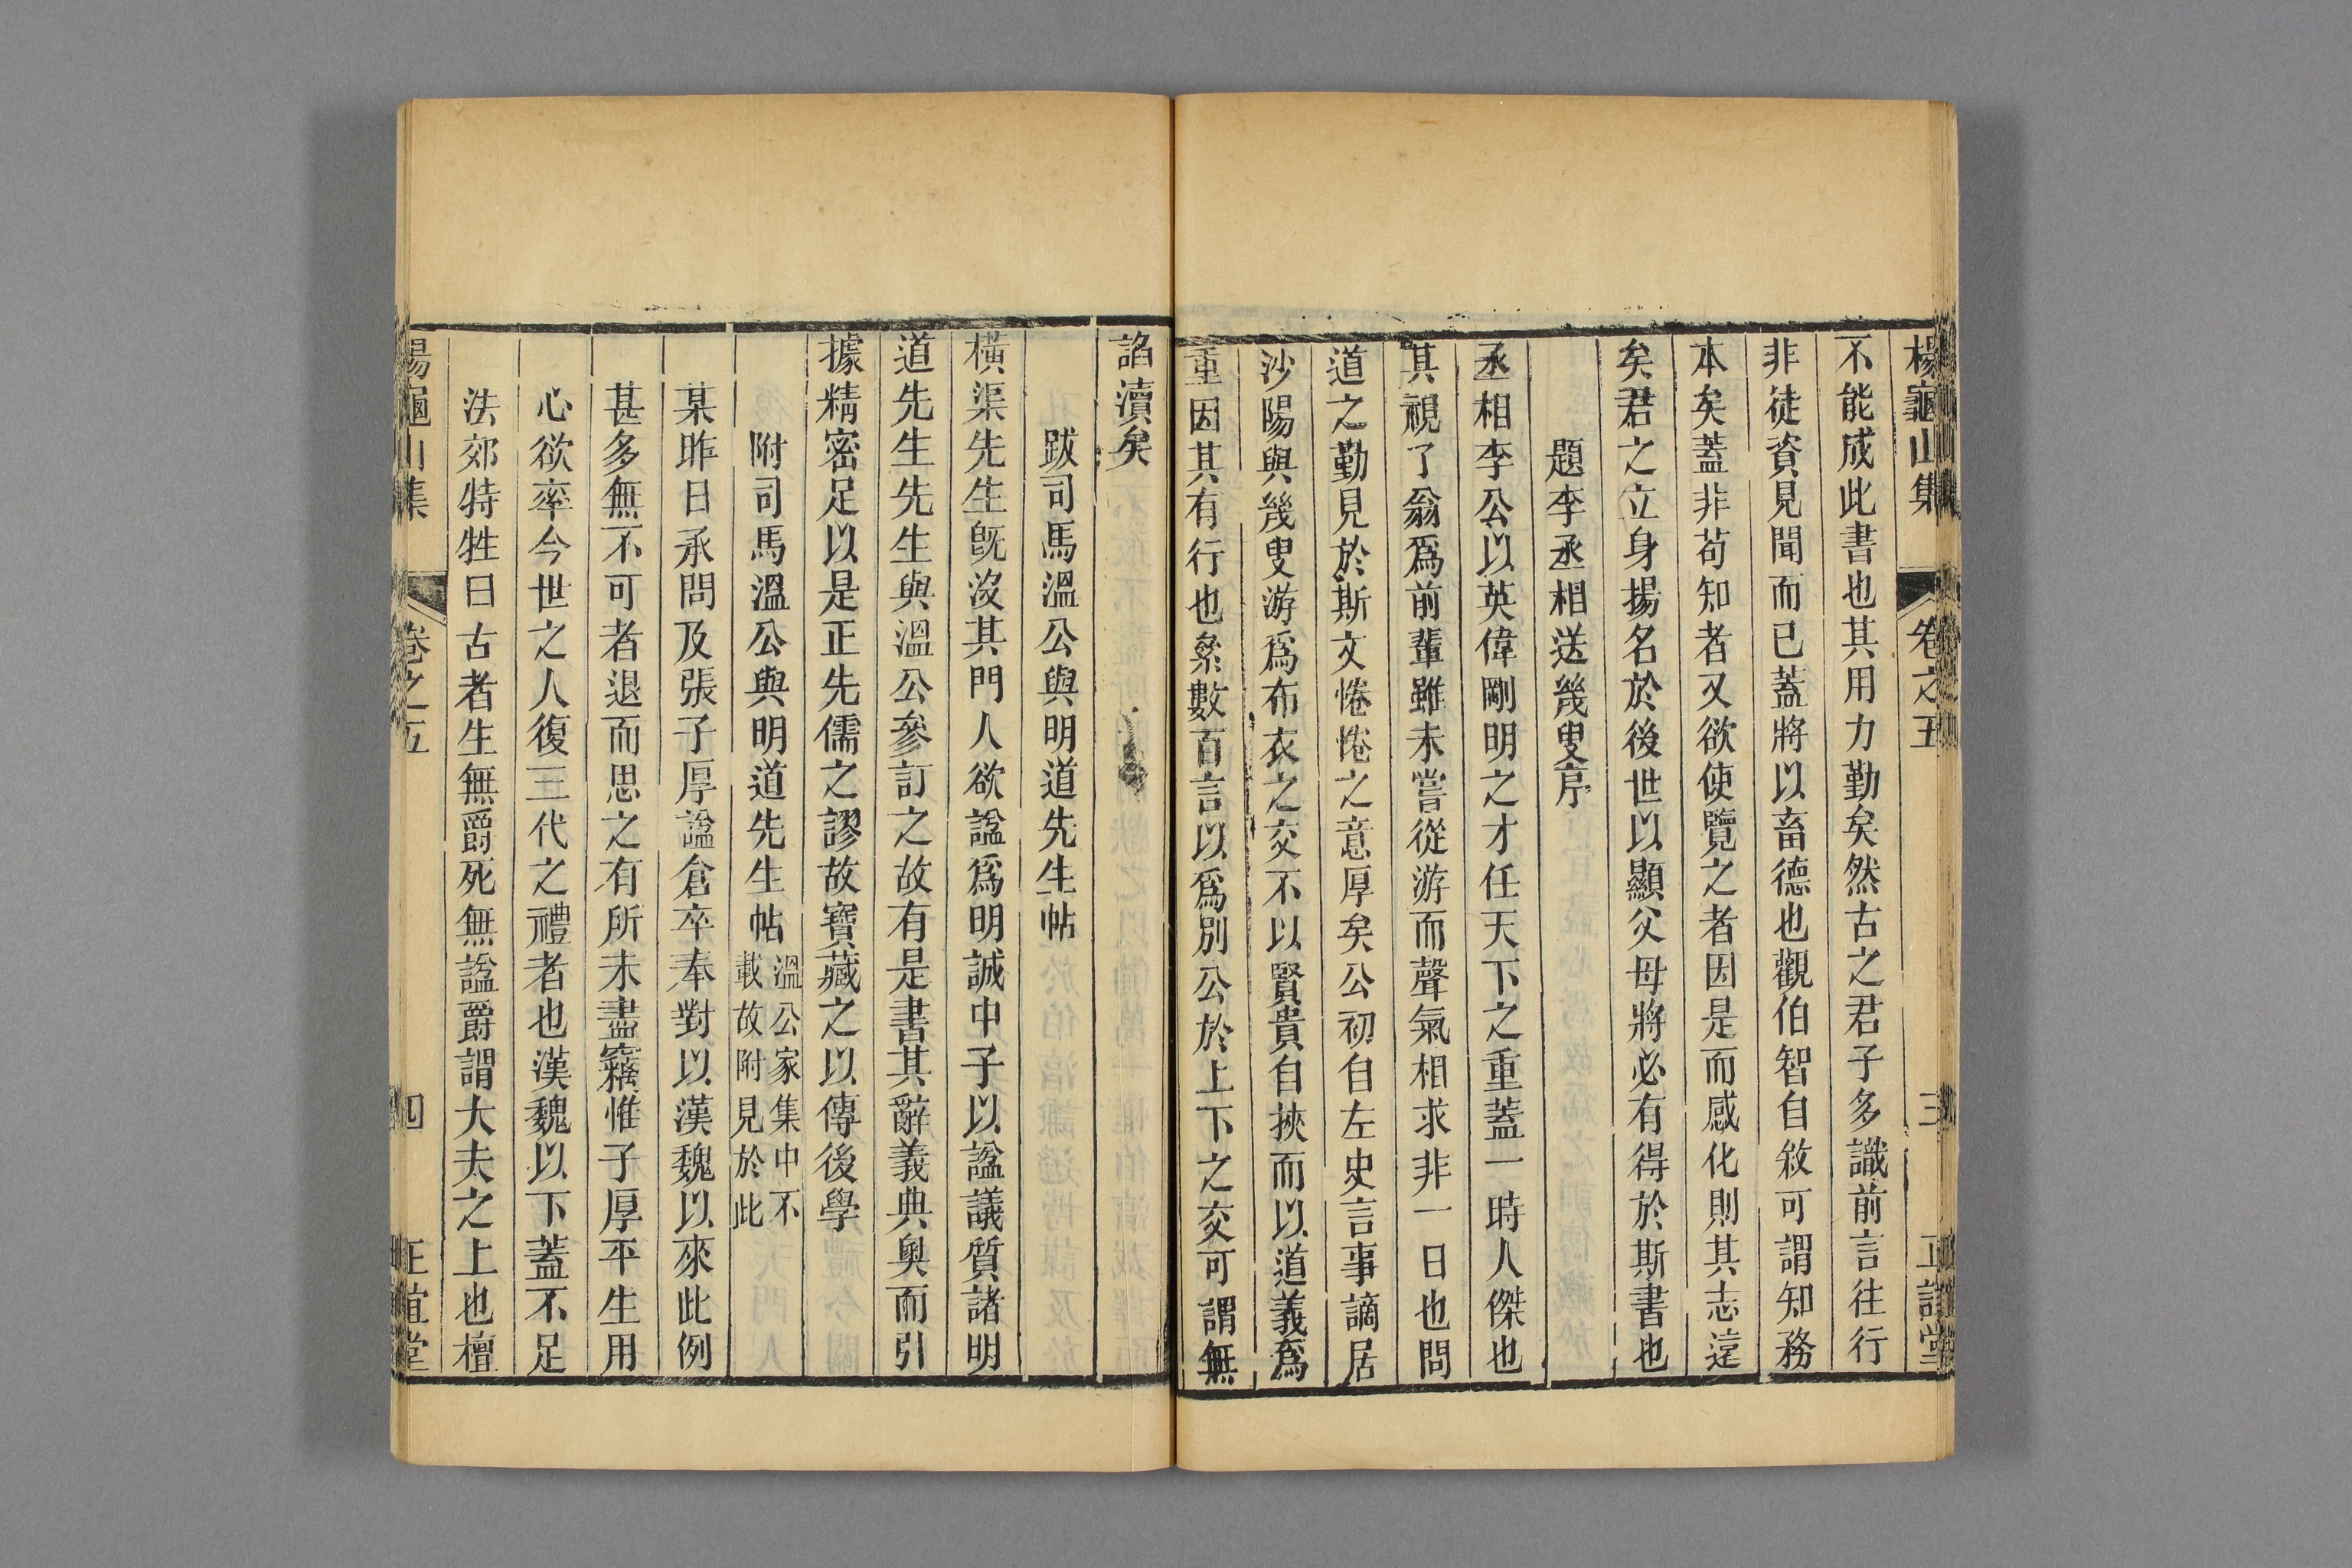 楊龜山集 卷之五 三 正誼堂
不能成此書也其用力勤矣然古之君子多識前言往行
非徒資見聞而已蓋將以畜德也觀伯智自敘可謂知務
本矣蓋非苟知者又欲使覽之者因是而感化則其志遠
矣君之立身揚名於後世以顯父母將必有得於斯書也
題李丞相送幾叟序
丞相李公以英偉剛明之才任天下之重蓋一時人傑也
其視了翁爲前輩雖未嘗從游而聲氣相求非一日也問
道之勤見於斯文惓惓之意厚矣公初自左史言事謫居
沙陽與幾叟游爲布衣之交不以賢貴自挾而以道義爲
重因其有行也絫數百言以爲別公於上下之交可謂無
諂瀆矣
跋司馬溫公與明道先生帖
橫渠先生旣沒其門人欲諡爲明誠中子以諡議質諸明
道先生先生與溫公參訂之故有是書其辭義典奧而引
據精密足以是正先儒之謬故寶藏之以傳後學
附司馬溫公與明道先生帖溫公家集中不載故附見於此
某昨日承問及張子厚諡倉卒奉對以漢魏以來此例
甚多無不可者退而思之有所未盡竊惟子厚平生用
心欲率今世之人復三代之禮者也漢魏以下蓋不足
法郊特牲曰古者生無爵死無諡爵謂大夫之上也檀
楊龜山集 卷之五 四 正誼堂